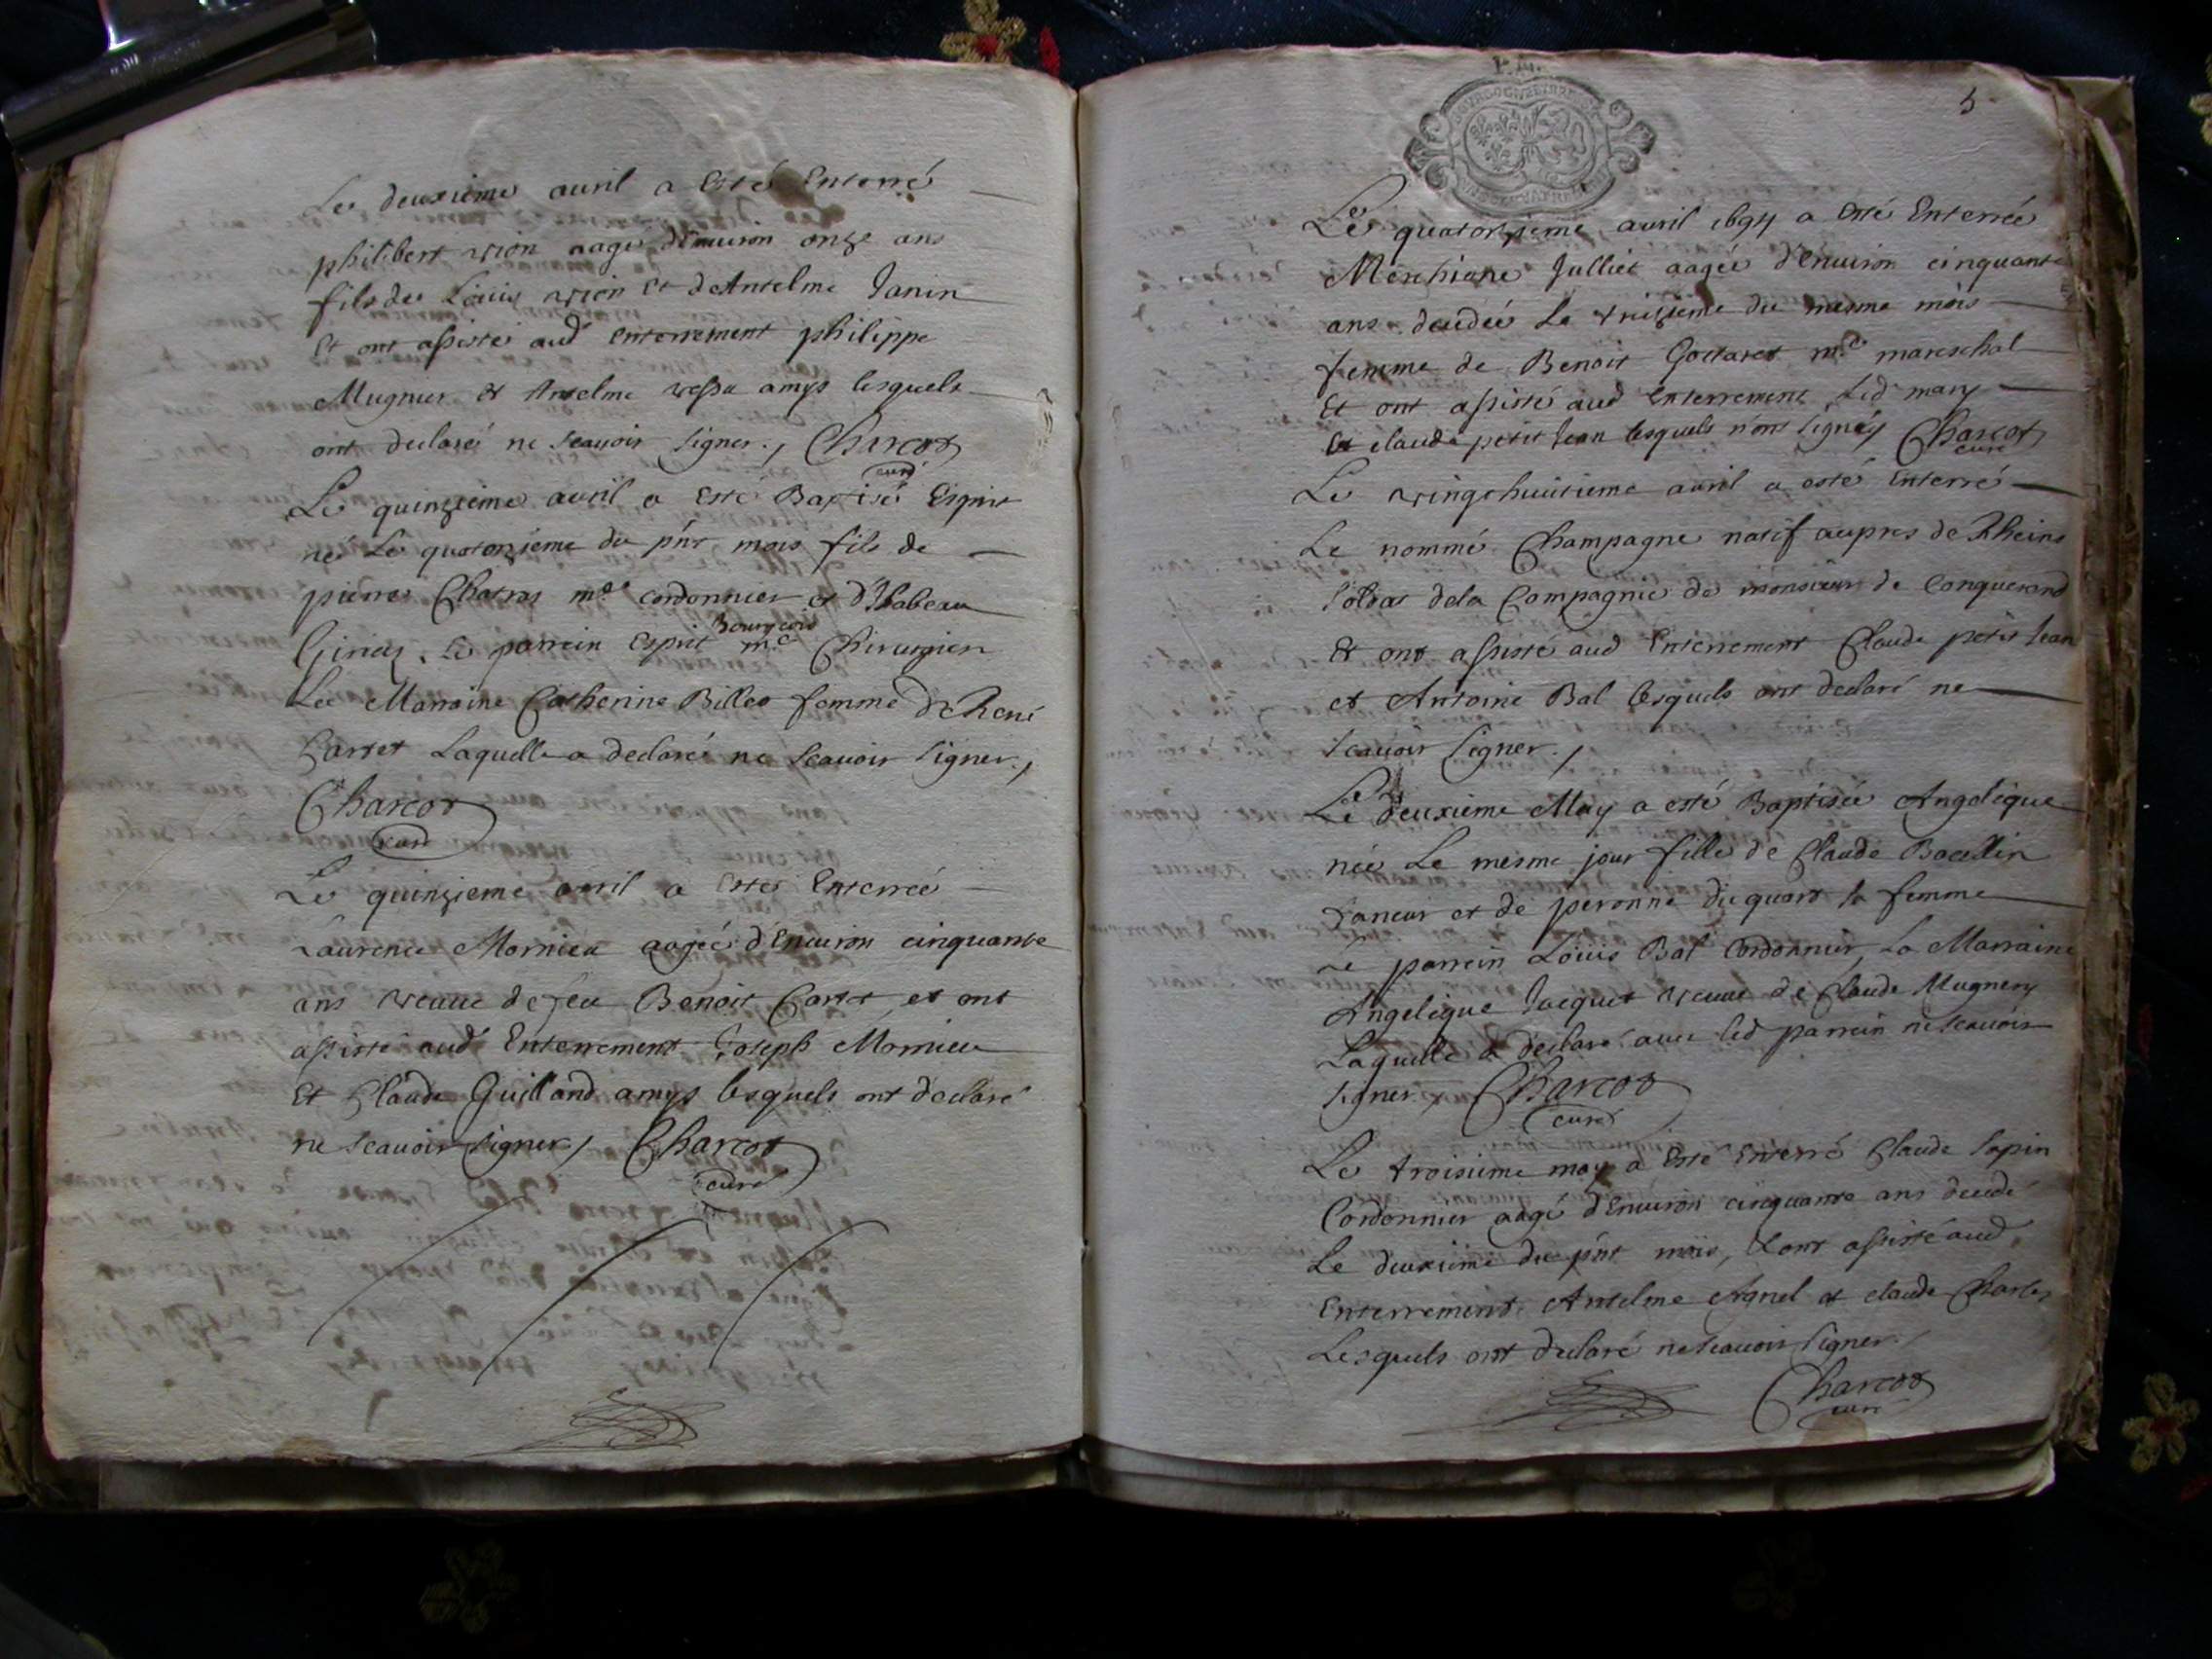 Le deuxieme auril a Esté Enterré
philibert vion aagé d'Enuiron onze ans
fils de Louis vion et d'Antelme Janin
Et ont assisté aud Enterrement philippe
Mugnier & Anselme amys lesquels
ont declaré ne scauoir signer., Charcot
curé
Le quinzieme auril a Esté Baptisé Esprit
né Le quatorzieme du pñt mois fils de
pierre me cordonnier et d'Isabeau
Bourgeois
le parrein Esprit me Chirurgien
La Marraine Catherine femme De René
Carret Laquelle a declaré ne scauoir signer.,
Charcot
curé
Le quinzieme avril a Esté Enterreé
Laurence Mornieu aageé d'Enuiron cinquante
ans veaue de feu Benoit Carret et ont
assisté aud Enterrement Joseph Mornieu
Et Claude Guilland amys lesquels ont declaré
ne scauoir signer, Charcot
curé
5
Le quatorzieme auril 1694 a Esté Enterreé
Julliet aageé d'Enuiron cinquante
ans decedeé Le treizieme du mesme mois
femme de Benoit me mareschal
Et ont assisté aud Enterrement Led mary
Et claude petit Jean lesquels n'ont signéz Charcot
curé
Le vingthuitieme auril a esté Enterré
Le nommé Champagne natif aupres de Rheins
soldat dela Compagnie de monsieur de Conquerand
Et ont assisté aud Enterrement Claude petit Jean
et Antoine Bal lesquels ont declaré ne
scauoir signer.,
Le deuxieme May a esté Baptiseé Angelique
neé Le mesme jour fille de Claude
taneur et de peronne diquard sa femme
Le parrein Loüis Bal Cordonnier, La Marraine
Angelique Jacquet veuue de Claude Mugnery
Laquelle a declaré auec led parrein ne scauoir
signer., Charcot
curé
Le troisieme may a Esté Enterré Claude Sapin
Cordonnier aagé d'Enuiron cinquante ans decedé
Le deuxieme du pñt mois, Et ont assisté aud
Enterrement Antelme Agnel et claude
Lesquels ont declaré ne scauoir signer.
Charcot
curé